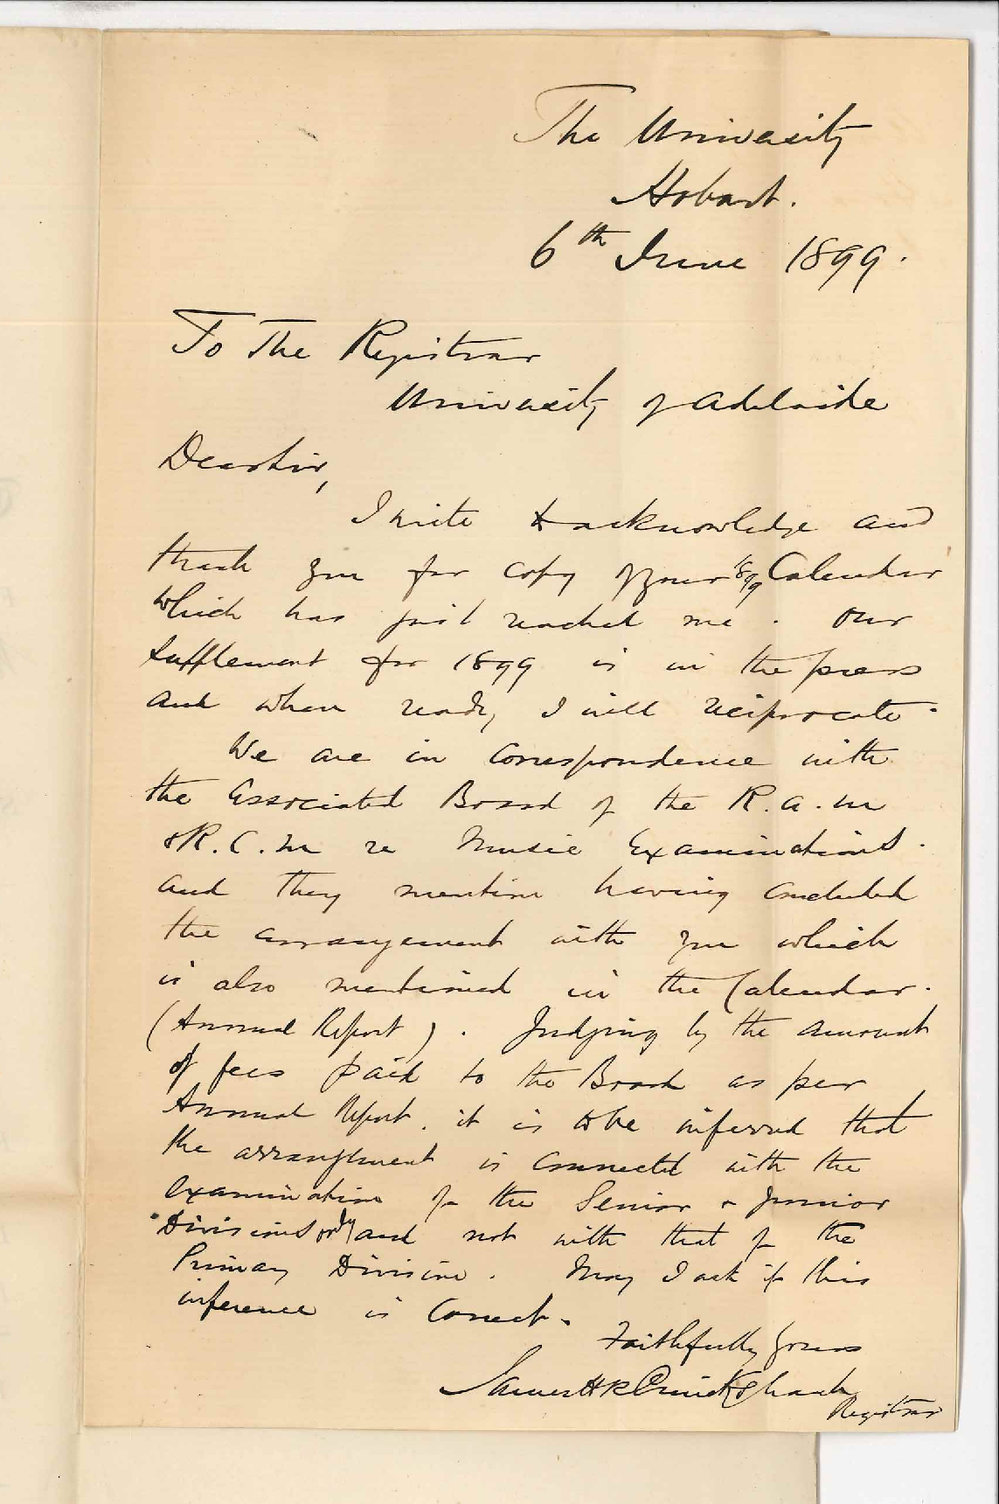 The University
Hobart.
6th June 1899.
To The Registrar
University of Adelaide
Dear Sir,
I write to acknowledge and
thank you for copy of your 1899 Calendar
which has just reached me. Our
Supplement for 1899 is in the press
and when ready I will reciprocate.
We are in correspondence with
the Associated Board of the R.A.M
& R.C.M re Music Examinations.
and they mention having concluded
the arrangement with you which
is also mentioned in the Calendar.
(Annual Report). Judging by the amount
of fees paid to the Board as per
Annual Report, it is to be inferred that
the arrangement is connected with the
examination of the Senior & Junior
Divisions only and not with that of the
Primary Division. May I ask if this
inference is correct.
Faithfully yours
Cruickshank
Registrar